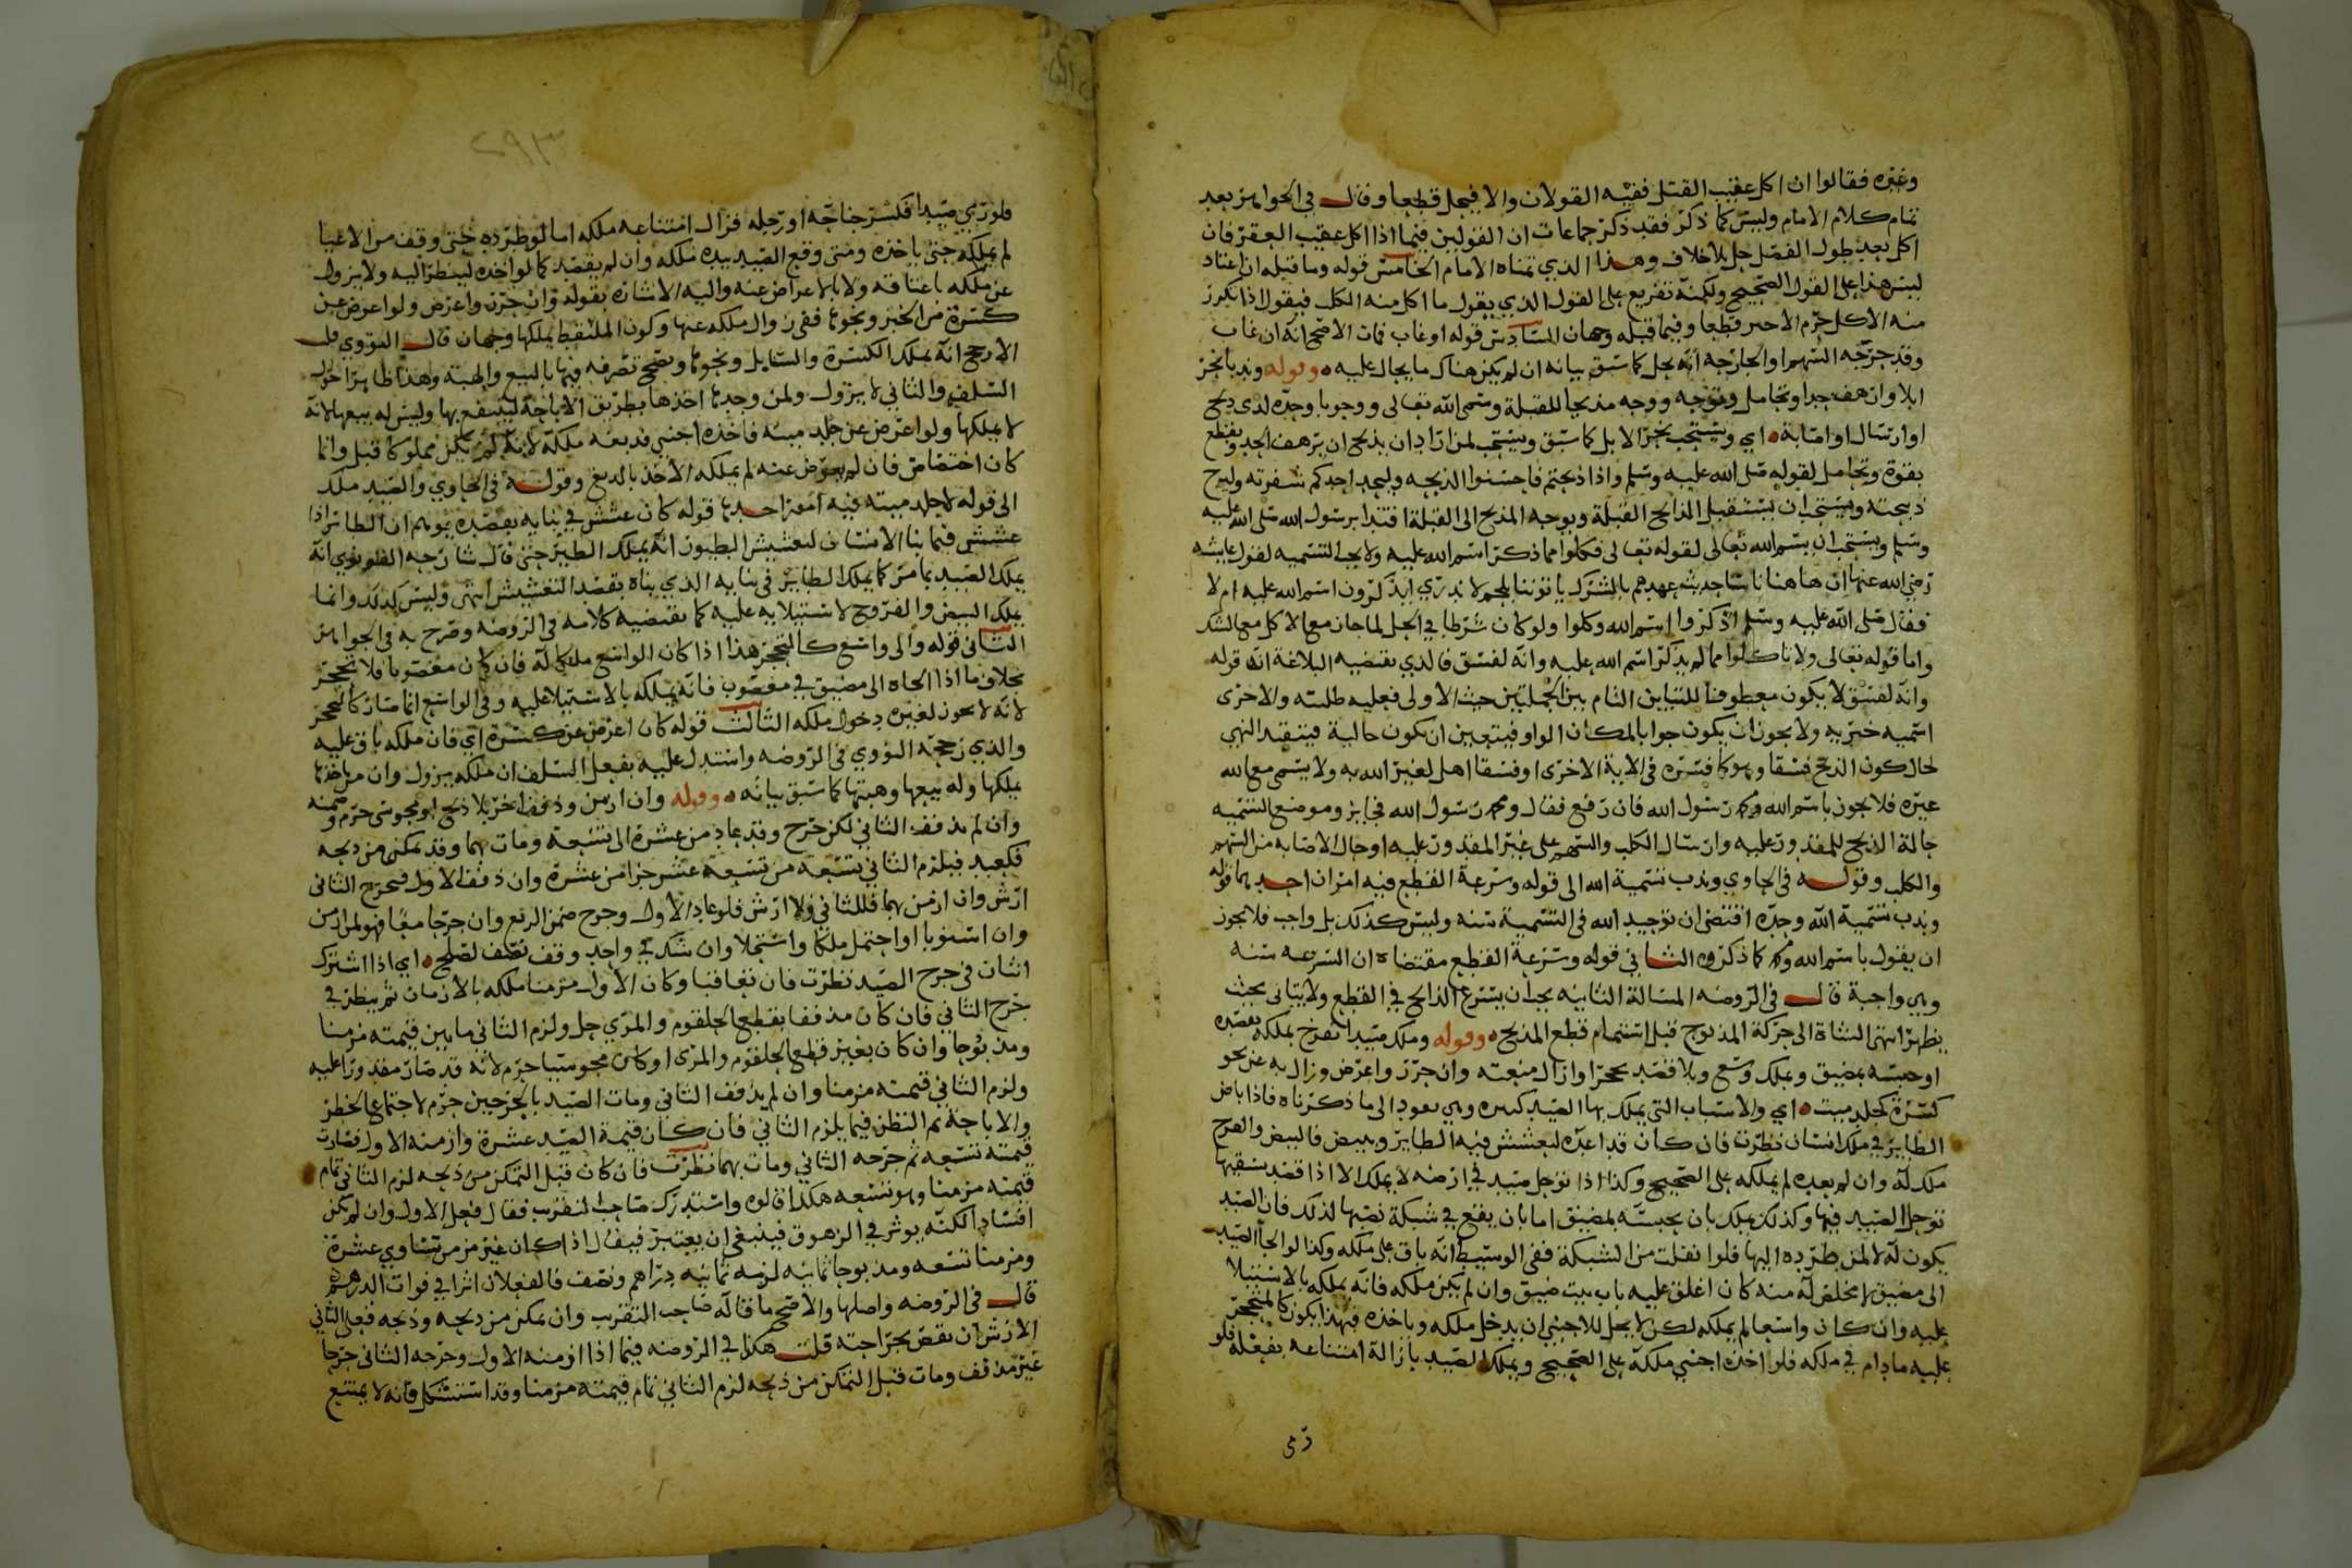 وغيره فقالوا ان اكل عقيب القتل ففيه القولان والا فيحل قطعا وقال في الجواهر بعد
تمام كلام الامام وليس كما ذكر فقد ذكر جماعات ان القولين فيما اذا اكل عقيب العقر فان
اكل بعد طول الفصل حل بلا خلاف وهذا الذي تمناه الامام الخامس قوله وما قبله ان اعتاد
ليس هذا على القول الصحيح ولكنه تفريع على القول الذي يقول ما اكل منه الكلب فيقول اذا تكرر
منه الاكل حرم الاخير قطعا وفيما قبله وجهان السادس قوله او غاب فمات الاصح انه ان غاب
وقد جرحه السهم او الجارحه انه يحل كما سبق بيانه ان لم يكن هناك ما يحال عليه وقوله وندبا نحر
ابلا وارهف حدا وتحامل وتوجه ووجه مذبحا للقبلة وسمى الله تعالى ووجوبا وحده لدى ذبح
او ارسال او اصابة اي ويستحب نحر الابل كما سبق ويستحب لمن اراد ان يذبح ان يرهف الحد ويقطع
بقوة وتحامل لقوله صلى الله عليه وسلم واذا ذبحتم فاحسنوا الذبحه وليحد احدكم شفرته وليرح
ذبيحته ويستحب ان يستقبل الذابح القبلة ويوجه المذبح الى القبلة اقتدا برسول الله صلى الله عليه
وسلم ويستحب ان يسم الله تعالى لقوله تعالى فكلوا مما ذكر اسم الله عليه ولا يجب التسميه لقول عايشه
رضي الله عنها ان هاهنا ناسا حديث عهدهم بالشرك ياتوننا بلحم لا ندري ايذكرون اسم الله عليه ام لا
فقال صلى الله عليه وسلم اذكروا اسم الله وكلوا ولو كان شرطا في الحل لما جاز مع الاكل مع الشك
واما قوله تعالى ولا تاكلوا مما لم يذكر اسم الله عليه وانه لفسق فالذي يقتضيه البلاغة ان قوله
وانه لفسق لا يكون معطوفا للتباين التام بين الجملتين حيث الاولى فعليه طلبية والاخرى
اسميه خبريه ولا يجوز ان يكون جوابا لمكان الواو فيتعين ان تكون حالية فيتقيد النهي
لحال كون الذبح فسقا وهو كما فسره في الاية الاخرى او فسقا اهل لغير الله به ولا يسمى مع الله
غيره فلا يجوز باسم الله ومحمد رسول الله فان رفع فقال ومحمد رسول الله فجايز وموضع التسميه
حالة الذبح للمقدور عليه وارسال الكلب والسهم على غير المقدور عليه او حال الاصابه من السهم
والكلب وقوله في الحاوي وندب تسمية الله الى قوله وسرعة القطع فيه امران احدهما قوله
وندب تسمية الله وحده اقتضى ان توحيد الله في التسمية سنه وليس كذلك بل واجب فلا يجوز
ان يقول باسم الله ومحمد كما ذكروه الثاني قوله وسرعة القطع مقتضاه ان السرعه سنه
وهي واجبة قال في الروضه المسالة الثانيه يجب ان يسرع الذابح في القطع ولا يتانى بحيث
يظهر انتها الشاة الى حركة المذبوح قبل استتمام قطع المذبح وقوله وملك صيدا تفرخ بملكه بقصده
او حبسه بمضيق وبملك وسع وبلا قصد تحجرا وازال منعته وان حرر واعرض وزال به عن نحو
كسرة كجلد ميت اي والاسباب التي يملك بها الصيد كثيره وهي تعود الى ما ذكرناه فاذا باض
الطاير في ملك انسان نظرت فان كان قد اعده ليعشش فيه الطاير ويبيض فالبيض والفرخ
ملك له وان لم يعده لم يملكه على الصحيح وكذا اذا توحل صيد في ارضه لا يملك الا اذا قصد بسقيها
توحل الصيد فيها وكذلك يملك بان يحبسه بمضيق اما بان يقع في شبكة نصبها لذلك فان الصيد
يكون له لا لمن طرده اليها فلو انفلت من الشبكة ففي الوسيط انه باق على ملكه وكذا لو الجا الصيد
الى مضيق لا مخلص له منه كان اغلق عليه باب بيت ضيق وان لم يكن ملكه فانه يملكه بالاستيلا
عليه وان كان واسعا لم يملكه لكن لا يحل للاجنبي ان يدخل ملكه وياخذه فهذا يكون كالمتحجر
عليه ما دام في ملكه فلو اخذه اجنبي ملكه على الصحيح ويملك الصيد بازالة امتناعه بفعله فلو
رمى
٢٩٣
فلو رمي صيدا فكسر جناحه او رجله فزال امتناعه ملكه اما لو طرده حتى وقف من الاعيا
لم يملكه حتى ياخذه ومتى وقع الصيد بيده ملكه وان لم يقصد كما لو اخذه لينظر اليه ولا يزول
عن ملكه باعتاقه ولا بالاعراض عنه واليه الاشاره بقوله وان حرر واعرض ولو اعرض عن
كسرة من الخبز ونحوها ففي زوال ملكه عنها وكون الملتقط يملكها وجهان قال النووي قلت
الارجح انه يملك الكسرة والسنابل ونحوها ويصح تصرفه فيها بالبيع والهبة وهذا ظاهر احوال
السلف والثاني لا يزول ولمن وجدها اخذها بطريق الاباحة لينتفع بها وليس له بيعها لانه
لا يملكها ولو اعرض عن جلد ميتة فاخذه اجنبي فدبغه ملكه لانه لم يكن مملوكا قبل وانما
كان اختصاص فان لم يعرض عنه لم يملكه الاخذ بالدبغ وقوله في الحاوي والصيد ملك
الى قوله لا جلد ميته فيه امور احدها قوله كان عشش في بنايه بقصده يوهم ان الطائر اذا
عشش فيما بنا الانسان لتعشيش الطيور انه يملك الطير حتى قال شارحه القونوي انه
يملك الصيد بما مر كما يملك الطاير في بنايه الذي بناه بقصد التعشيش انتهى وليس كذلك وانما
يملك البيض والفروخ لاستيلايه عليه كما يقتضيه كلامه في الروضه وصرح به في الجواهر
الثاني قوله والى واسع كالتحجر هذا اذا كان الواسع ملكا له فان كان مغصوبا فلا تحجر
بخلاف ما اذا الجاه الى مضيق في مغصوب فانه يملكه بالاستيلا عليه وفي الواسع انما صار كالتحجر
لانه لا يجوز لغيره دخول ملكه الثالث قوله كان اعرض عن كسرة اي فان ملكه باق عليه
والذي رجحه النووي في الروضه واستدل عليه بفعل السلف ان ملكه يزول وان من اخذها
يملكها وله بيعها وهبتها كما سبق بيانه وقوله وان ازمن وذفف اخر بلا ذبح او مجوسي حرم وضمنه
وان لم يذفف الثاني لكن جرح وقد عاد من عشرة الى تسعة ومات بهما وقد تمكن من ذبحه
فكعبد فيلزم الثاني تسعة من تسعة عشر جزا من عشرة وان ذفف الاول فبجرح الثاني
ارش وان ازمن بهما فللثاني ولا ارش فلو عاد الاول وجرح ضمن الربع وان جرحا معا فهو لمن ازمن
وان استويا او احتمل ملكا واستحلا وان شك في واحد وقف نصف لصلح اي اذا اشترك
اثنان في جرح الصيد نظرت فان تعاقبا وكان الاول مزمنا ملكه بالازمان ثم ينظر في
جرح الثاني فان كان مذففا بقطع الحلقوم والمري حل ولزم الثاني ما بين قيمته مزمنا
ومذبوحا وان كان بغير قطع الحلقوم والمرى او كان مجوسيا حرم لانه قد صار مقدورا عليه
ولزم الثاني قيمته مزمنا وان لم يذفف الثاني ومات الصيد بالجرحين حرم لاجتماع الحظر
والاباحة ثم النظر فيما يلزم الثاني فان كان قيمة الصيد عشرة وازمنه الاول فصارت
قيمته تسعه ثم جرحه الثاني ومات بهما نظرت فان كان قبل التمكن من ذبحه لزم الثاني تمام
قيمته مزمنا وهو تسعه هكذا قالوه واستدرك صاحب التقريب فقال فعل الاول وان لم يكن
افسادا لكنه يوثر في الزهوق فينبغي ان يعتبر فيقال اذا كان غير مزمن تساوي عشرة
ومزمنا تسعه ومذبوحا ثمانيه لزمه ثمانيه دراهم ونصف فالفعلان اثرا في فوات الدرهم
قال في الروضه واصلها والاصح ما قاله صاحب التقريب وان تمكن من ذبحه وذبحه فعلى الثاني
الارش ان نقص بجراحته قلت هكذا في الروضه فيما اذا ازمنه الاول وجرحه الثاني جرحا
غير مذفف ومات قبل التمكن من ذبحه لزم الثاني تمام قيمته مزمنا وقد استشكل فانه لا يمتنع